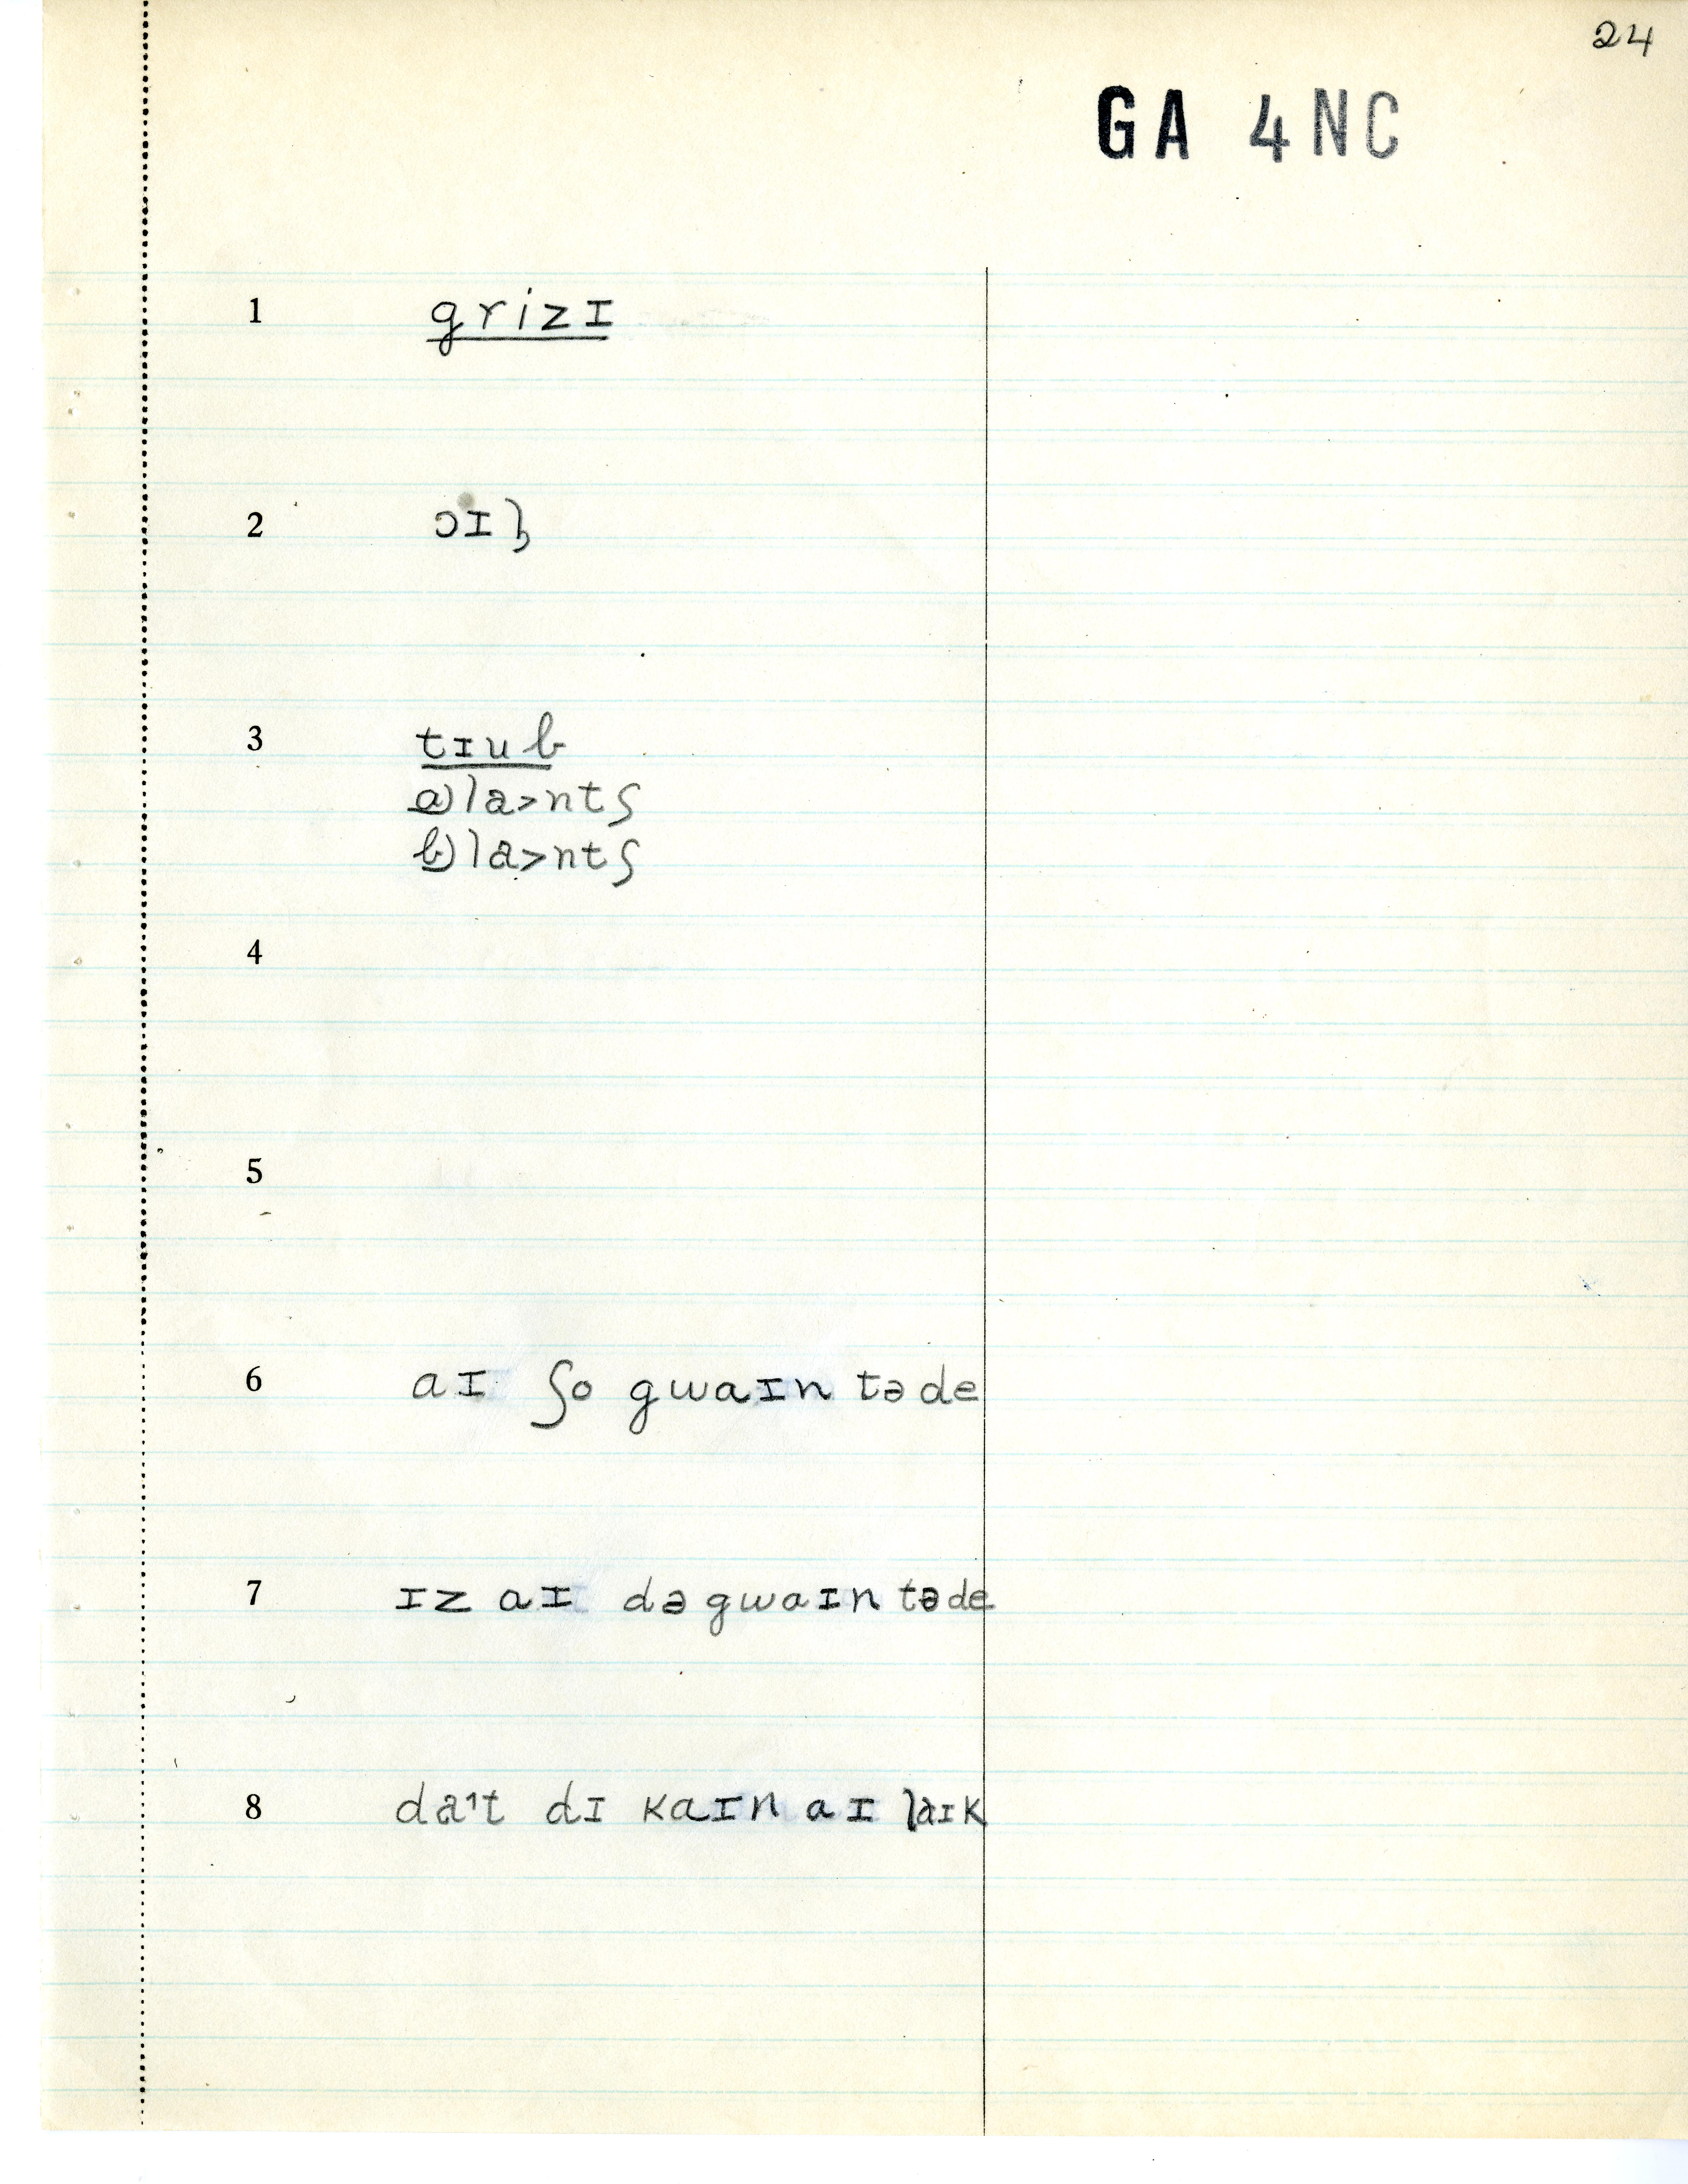 24
GA 4NC
1 grizɪ
2 ɔɪɮ
3 tɪub
a) la˃ntʃ
b) la˃ntʃ
4
5
6 aɪ ʃo gwaɪn təde
7 ɪz aɪ də gwaɪn təde
8 da˺t dɪ kaɪn aɪ laɪk